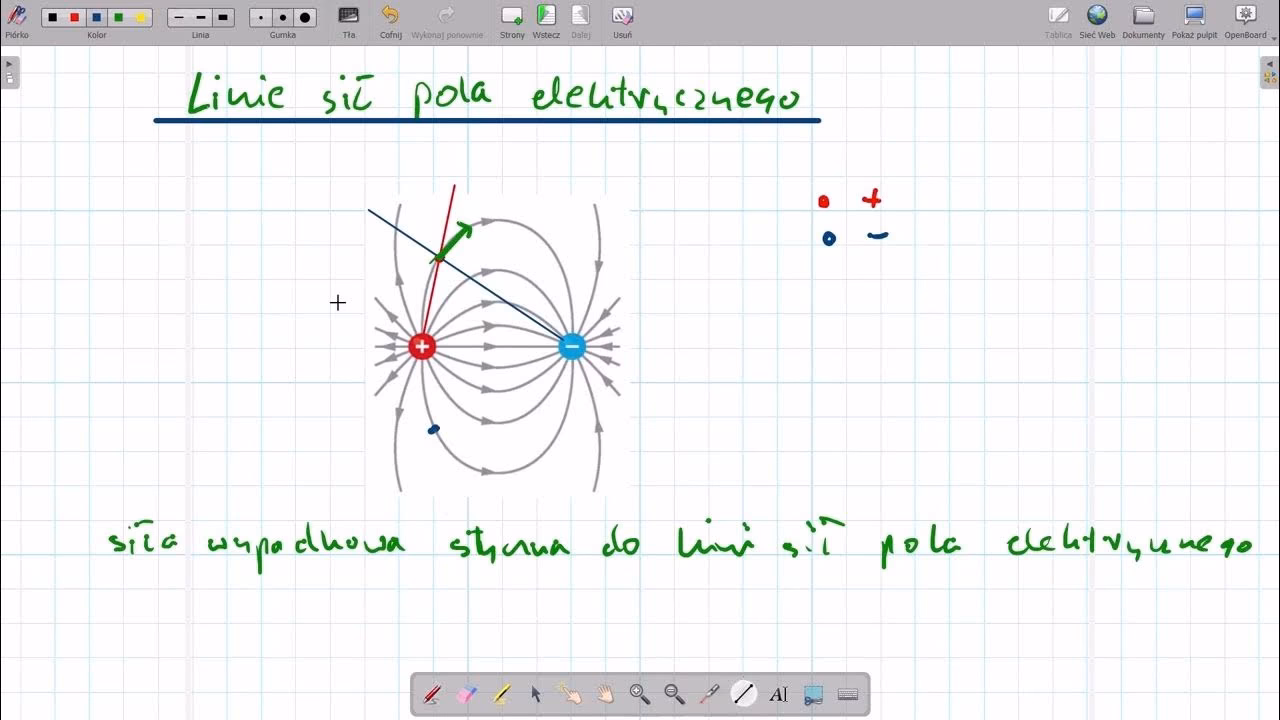 Piórko Kolor Linia Gumka Tła Cofnij Wykonaj ponownie Strony Wstecz Dalej Usuń Tablica Sieć Web Dokumenty Pokaż pulpit OpenBoard
Linie sił pola elektrycznego
+
−
+ −
siła wypadkowa styczna do linii sił pola elektrycznego
AI